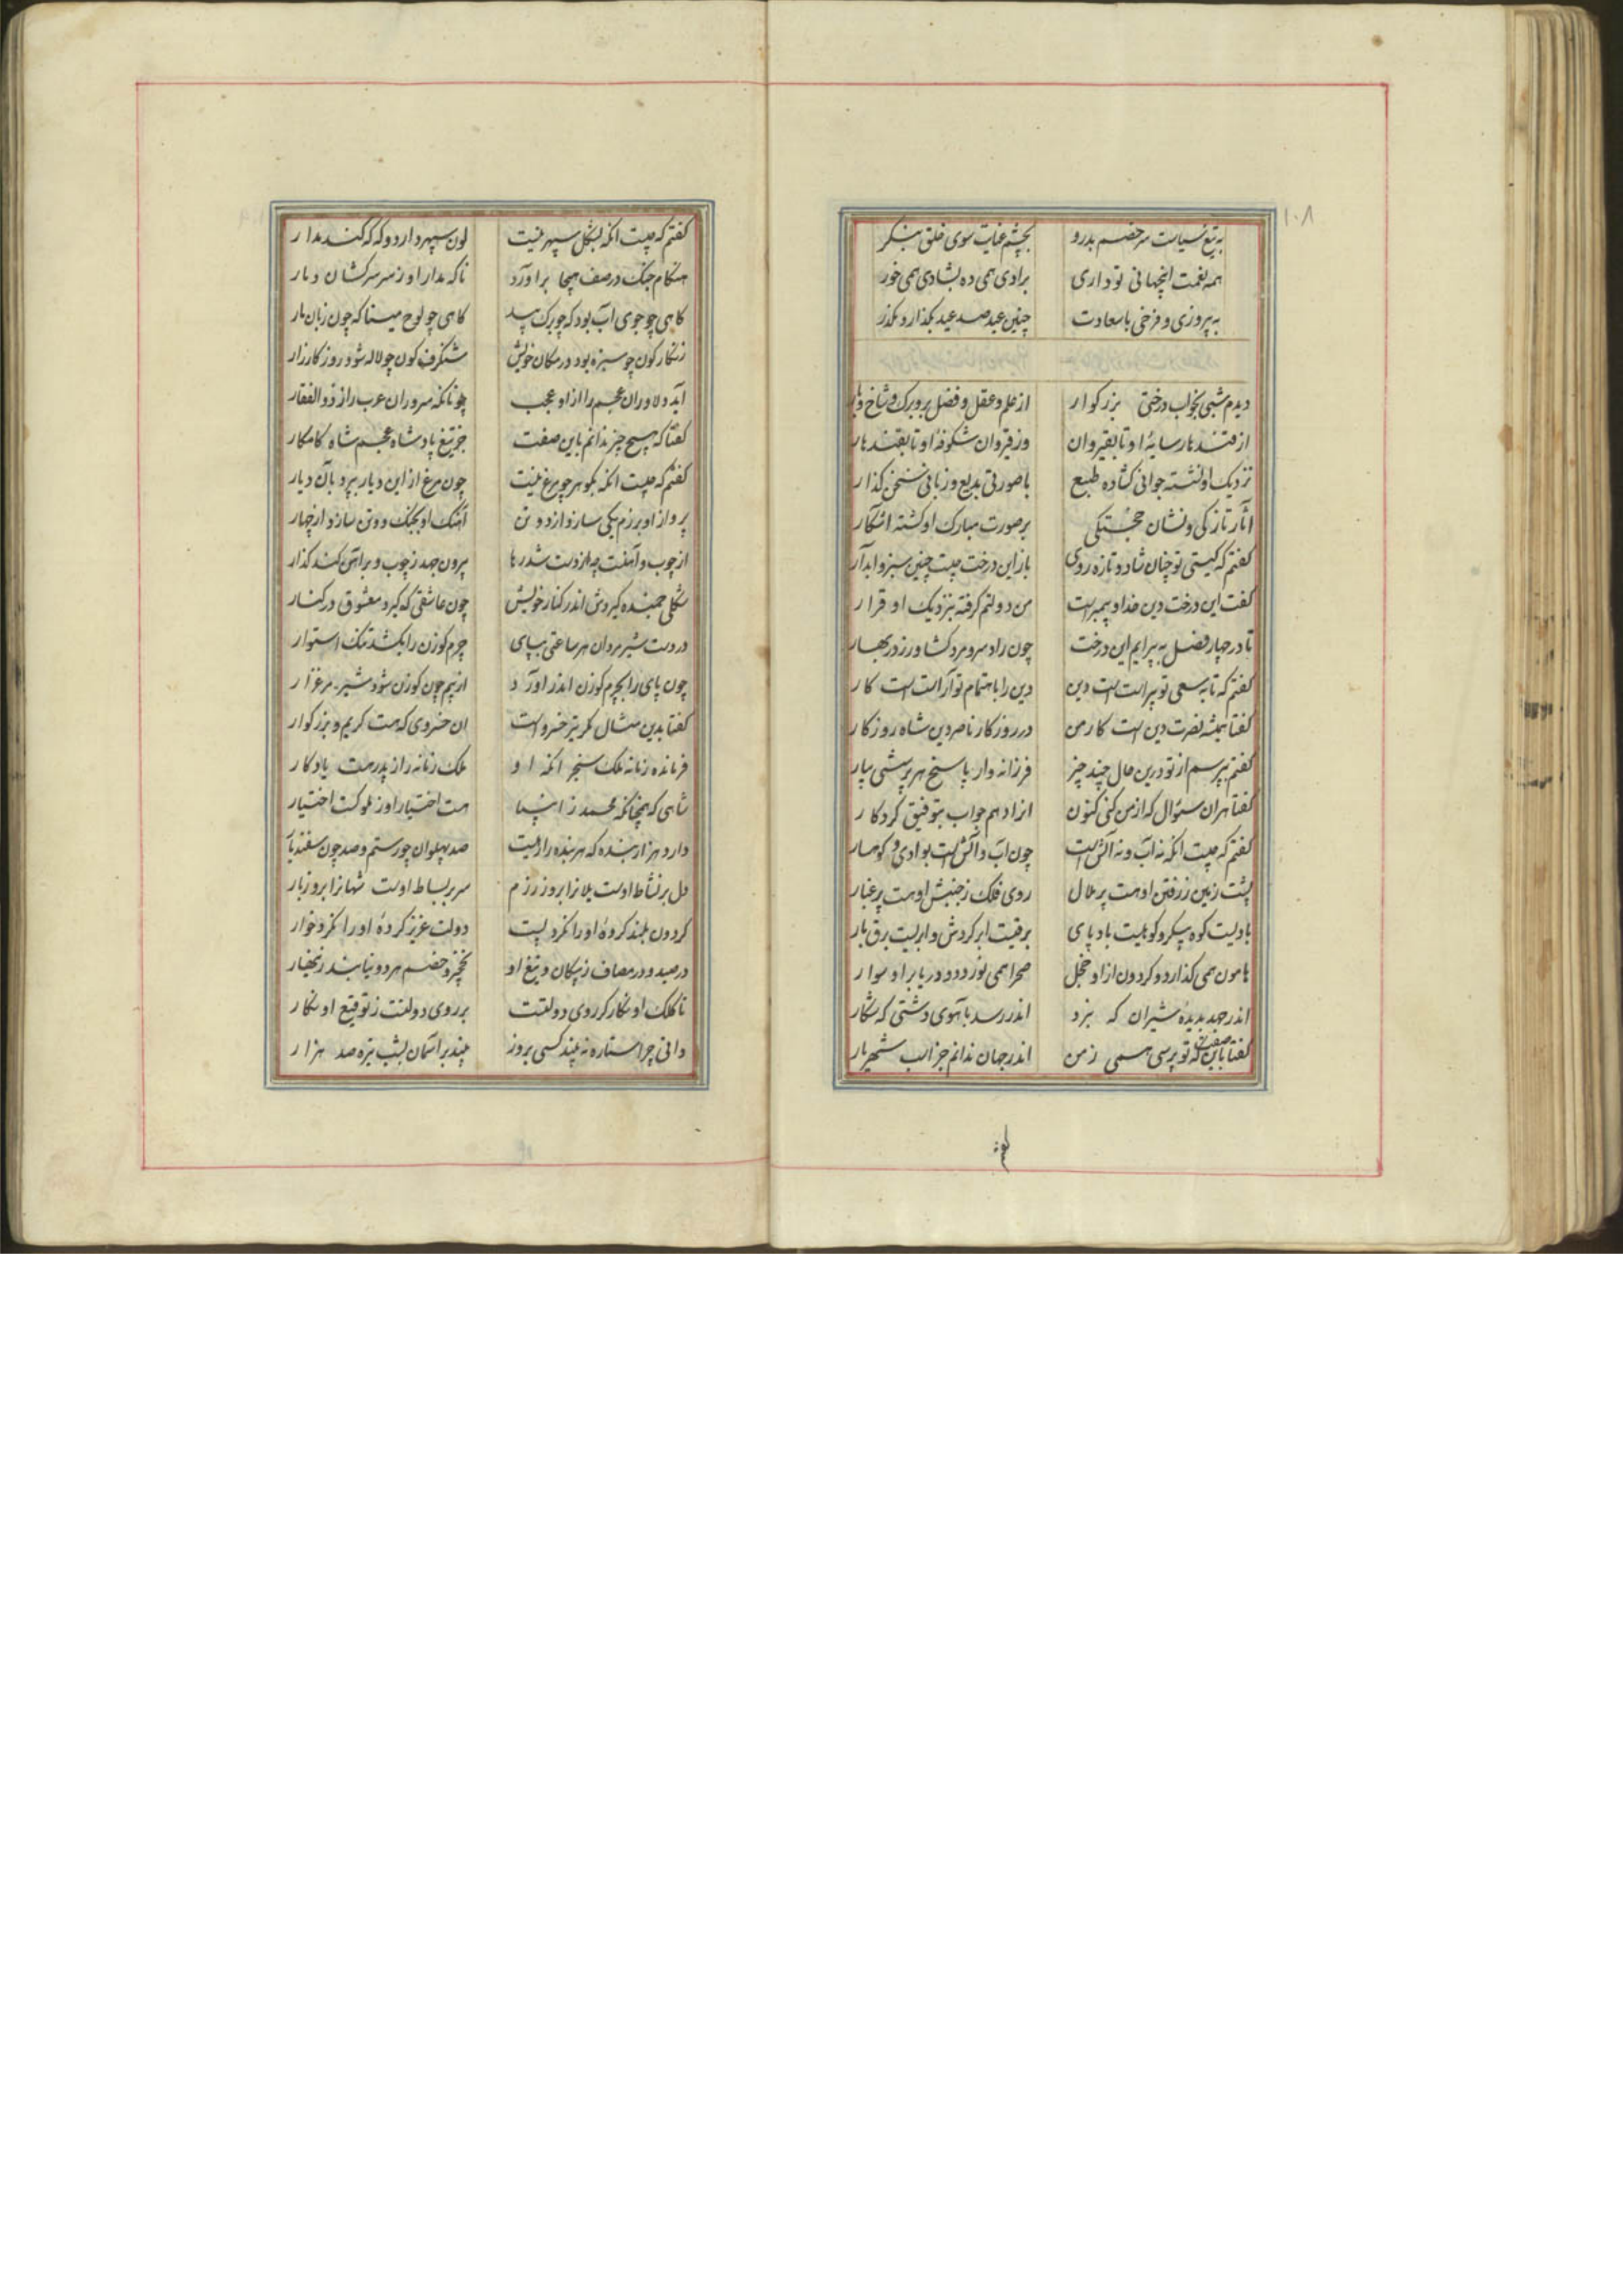 ۱۰۸
به تیغ سیاست سر خصم بدرو بچشم عنایت سوی خلق بنگر
همه نعمت اینجهانی تو داری برادی همی ده بشادی همی خور
به پیروزی و فرخی با سعادت چنین عید صد عید بگذار و بگذر
دیدم شبی بخواب درختی بزرکوار از علم و عقل و فضل برو برک و شاخ و بار
از قندهار سایهٔ او تا بقیروان وز قیروان شکوفهٔ او تا بقندهار
نزدیک او نشسته جوانی کشاده طبع با صورتی بدیع و زبانی سخن کذار
آثار تازکی و نشان خجستکی بر صورت مبارک او کشته اشکار
کفتم که کیستی تو چنان شاد و تازه روی باز این درخت چیست چنین سبز و ابدار
کفت این درخت دین خدا و پیمبرست من دولتم کرفته بنزدیک او قرار
تا در چهار فصل به پیرایم این درخت چون راد سرو مرد کشاورز در بهار
کفتم که تا به سعی تو پیراسته است دین دین را باهتمام تو آراسته است کار
کفتا همیشه نصرت دین است کار من در روزکار ناصر دین شاه روزکار
کفتم بپرسم از تو درین حال چند چیز فرزانه وار پاسخ هر پرسشی بیار
کفتا هران سئوال که از من کنی کنون انرا دهم جواب بتوفیق کردکار
کفتم که چیست انکه نه آب و نه آتش است چون آب و آتش است بوادی و کوهسار
پشت زمین ز رفتن او هست پر هلال روی فلک ز جنبش او هست پر غبار
بادیست کوه پیکر و کوهیست باد پای برقیست ابر کردش و ابریست برق بار
هامون همی کذارد و کردون از او خجل صحرا همی نوردد و دریا بر او سوار
اندر جهد بدیده شیران که نبرد اندر رسد باهوی دشتی که شکار
کفتا باین صفت که تو پرسی همی ز من اندر جهان ندانم جز اسب شهریار
کفتم
کفتم که چیست انکه بشکل سپهر نیست لون سپهر دارد و که که کند مدار
هنکام جنک در صف هیجا براورد ناکه مدار او ز سر سرکشان دمار
کاهی چو جوی آب بود که چو برک بید کاهی چو لوح مینا که چون زبان مار
زنکار کون چو سبزه بود در مکان خویش شنکرف کون چو لاله شود روز کارزار
آید دلاوران عجم را از او عجب چونانکه سروران عرب را ز ذوالفقار
کفتا که هیچ چیز ندانم باین صفت جز تیغ پادشاه عجم شاه کامکار
کفتم که چیست انکه بکوهر چو مرغ نیست چون مرغ از این دیار بپرد بآن دیار
پرواز او برزم یکی سازد از دو تن آهنک او بجنک دو تن سازد از چهار
از چوب و آهنست چو از دست شد رها بیرون جهد ز چوب و بر آهن کند کذار
شکلی خمیده کیردش اندر کنار خویش چون عاشقی که کیرد معشوق در کنار
در دست شیر مردان هر ساعتی بپای چرم کوزن را بکشد تنک استوار
چون پای را بچرم کوزن اندر اورد از بیم چون کوزن شود شیر مرغزار
کفتا بدین مثال مکر تیر خسرو است ان خسروی که هست کریم و بزرکوار
فرمانده زمانه ملک سنجر انکه او ملک زمانه را ز پدر هست یادکار
شاهی که همچنانکه محمد ز انبیا هست اختیار او ز ملوکست اختیار
دارد هزار بنده که هر بنده را دلیست صد پهلوان چو رستم و صد چون سفندیار
دل بر نشاط اوست یلانرا بروز رزم سر بر بساط اوست شهانرا بروز بار
کردون بلند کردهٔ او را نکرد پست دولت عزیز کردهٔ او را نکرد خوار
در صید و در مصاف ز پیکان و تیغ او نخچیر و خصم هر دو نیابند زنهار
تا کلک او نکار کر روی دولتست بر روی دولتست ز توقیع او نکار
دانی چرا ستاره نه بیند کسی بروز بیند بر آسمان بشب تیره صد هزار